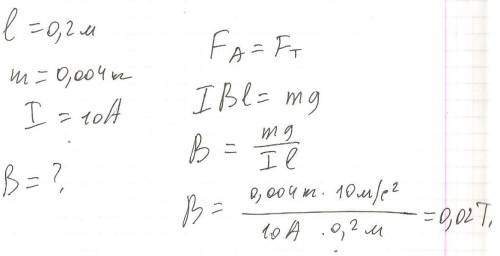 l = 0,2 м
m = 0,004 кг
I = 10 А
B = ?
F_A = F_T
IBl = mg
B = mg / Il
B = 0,004 кг · 10 м/с² / 10 А · 0,2 м = 0,02 Т.